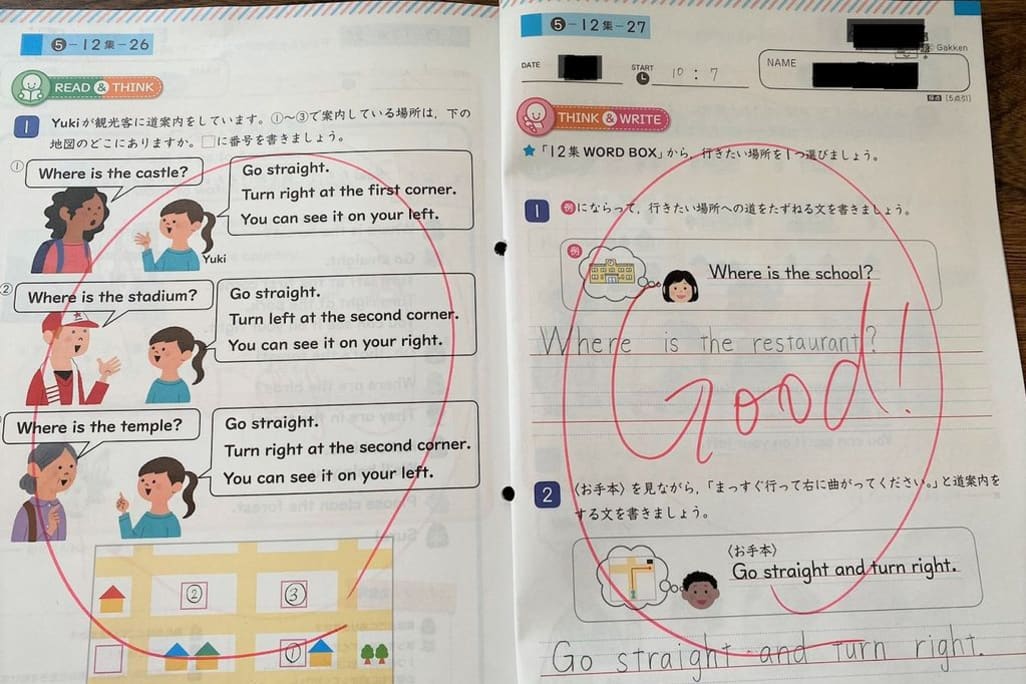 ❺-12集-26
READ & THINK
1 Yukiが観光客に道案内をしています。①〜③で案内している場所は、下の
地図のどこにありますか。□に番号を書きましょう。
① Where is the castle?
Go straight.
Turn right at the first corner.
You can see it on your left.
Yuki
② Where is the stadium?
Go straight.
Turn left at the second corner.
You can see it on your right.
Where is the temple?
Go straight.
Turn right at the second corner.
You can see it on your left.
② ③
①
❺-12集-27
Gakken
DATE START 10:7 NAME
(5点引)
THINK & WRITE
★「12集 WORD BOX」から、行きたい場所を1つ選びましょう。
1 例にならって、行きたい場所への道をたずねる文を書きましょう。
例 Where is the school?
Where is the restaurant?
Good!
2 〈お手本〉を見ながら、「まっすぐ行って右に曲がってください。」と道案内を
する文を書きましょう。
〈お手本〉
Go straight and turn right.
Go straight and turn right.